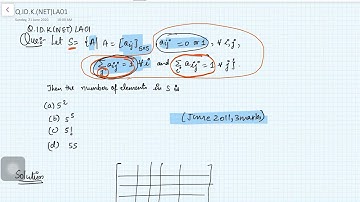 Q.ID.K.(NET)LA01
Sunday, 21 June 2020
Q.ID.K(NET) LA01
Ques: Let S = {A| A = [aij]5x5 aij = 0 or 1, ∀ i,j,
∑j aij = 1 ∀ i and ∑i aij = 1 ∀ j}.
Then the number of elements in S is
(a) 5²
(b) 5⁵
(c) 5!
(d) 55
(June 2011, 3 marks)
Solution